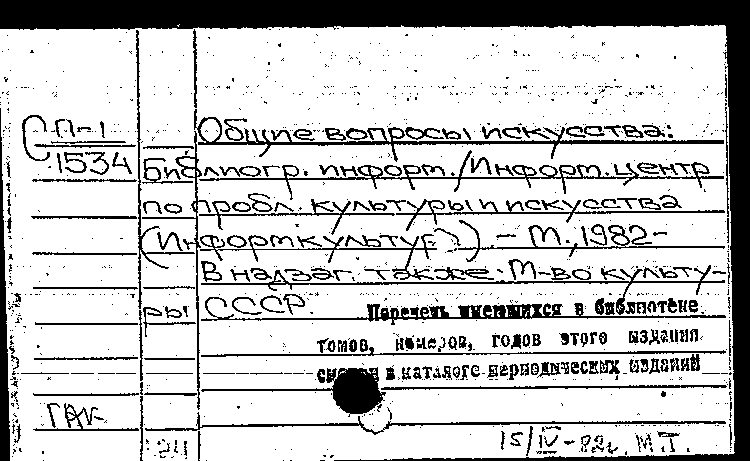 СП-1
1534
Общие вопросы искусства:
Библиогр. информ. / Информ. центр
по пробл. культуры и искусства
(Информкультура). - М., 1982-
В надзаг. также: М-во культу-
ры СССР.
Перечень имеющихся в библиотеке
томов, номеров, годов этого издания
смотри в каталоге периодических изданий
ГАК
15/IV-82г. М.Т.